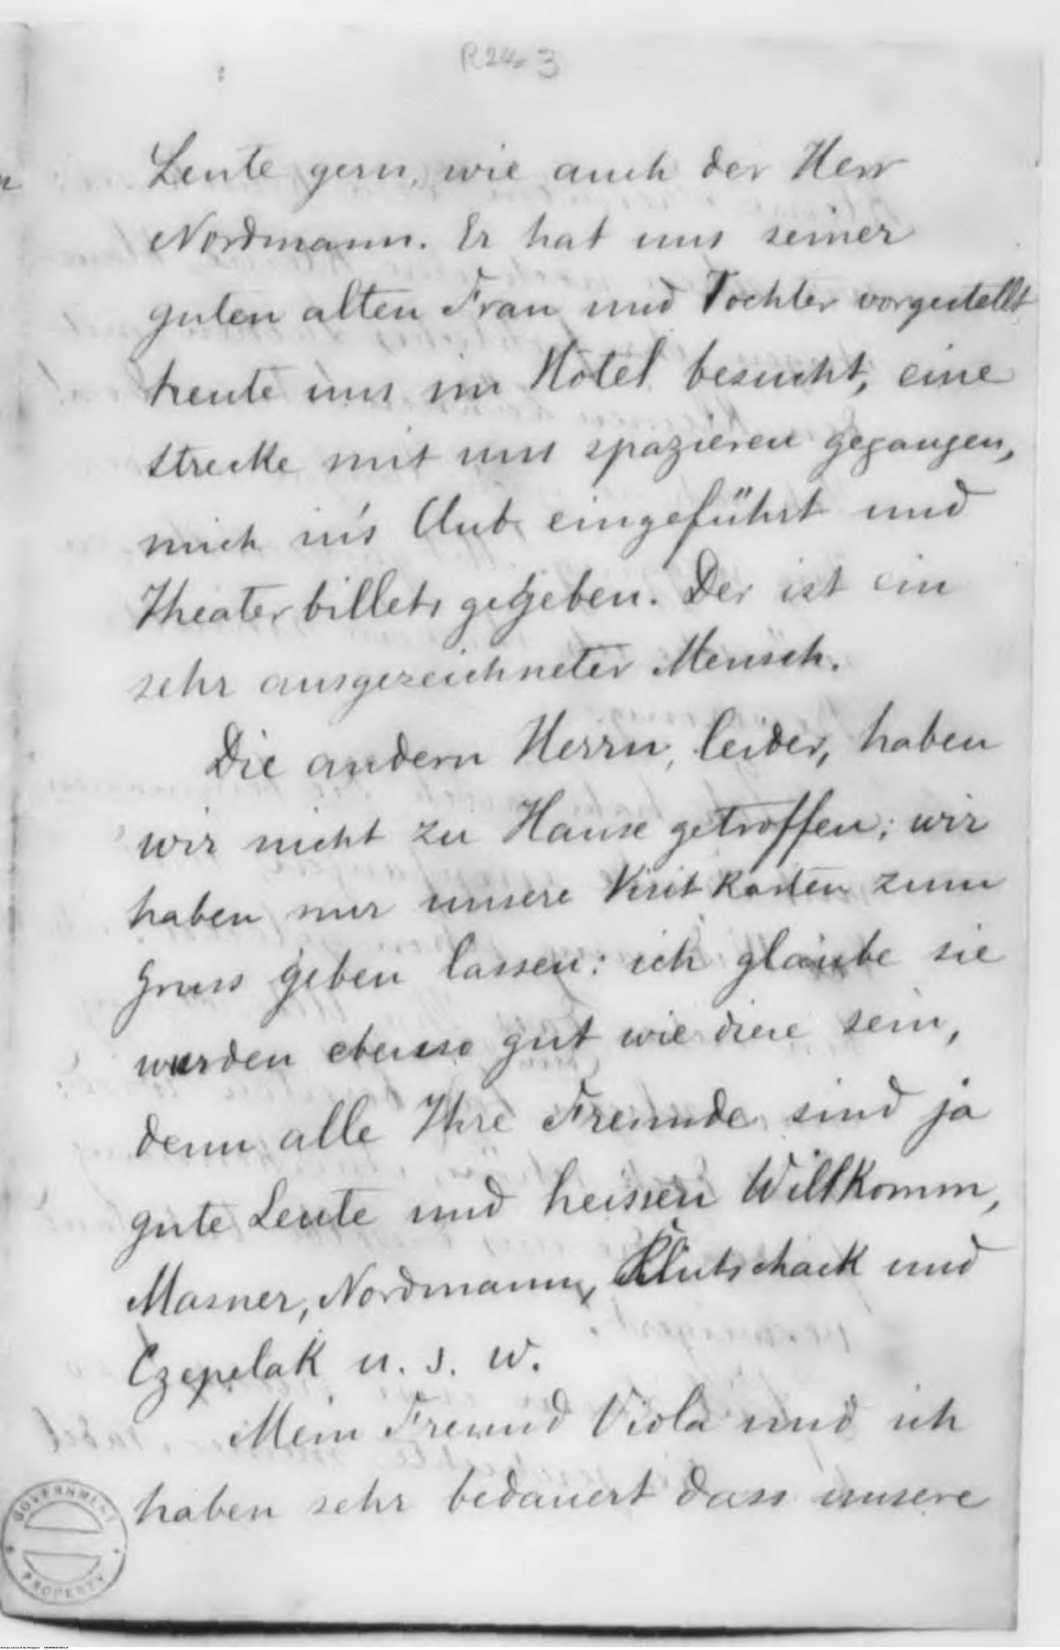 R243
Leute gern, wie auch der Herr
Nordmann. Er hat uns seiner
guten alten Frau und Tochter vorgestellt
heute uns im Hôtel besucht, eine
strecke mit uns spazieren gegangen,
mich in's Club eingeführt und
Theaterbillets gegeben. Der ist ein
sehr ausgezeichneter Mensch.
Die andern Herrn, leider, haben
wir nicht zu Hause getroffen; wir
haben nur unsere Visitkarten zum
gruss geben lassen: ich glaube sie
wurden ebenso gut wie diese sein,
denn alle Ihre Freunde sind ja
gute Leute und heissen Willkomm,
Masner, Nordmann, Klutschack und
Czepelak u. s. w.
Mein Freund Viola und ich
haben sehr bedauert dass unsere
GOVERNMENT
PROPERTY